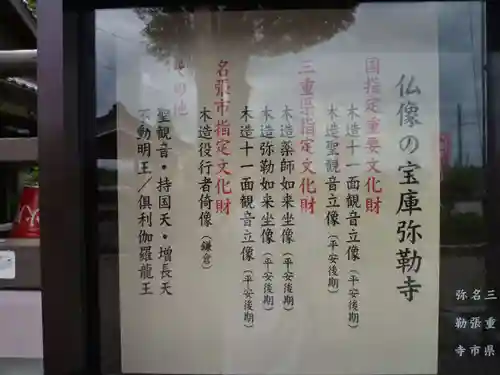 仏像の宝庫弥勒寺
国指定重要文化財
木造十一面観音立像（平安後期）
木造聖観音立像（平安後期）
三重県指定文化財
木造薬師如来坐像（平安後期）
木造弥勒如来坐像（平安後期）
木造十一面観音立像（平安後期）
名張市指定文化財
木造役行者倚像（鎌倉）
その他
聖観音・持国天・増長天
不動明王／倶利伽羅龍王
三重県
名張市
弥勒寺